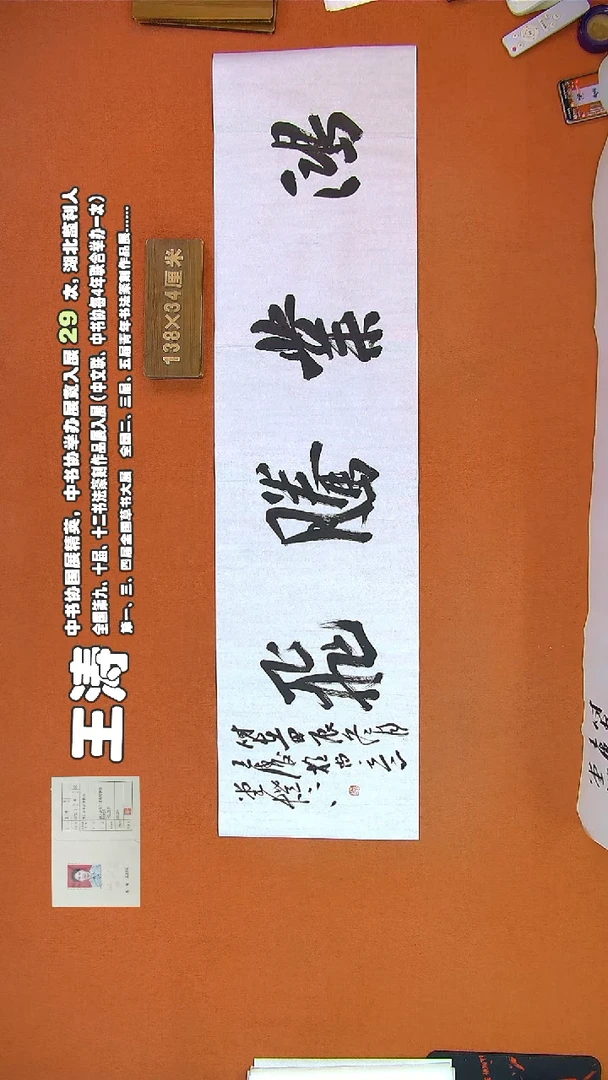 王涛
中书协国展精英，中书协举办展赛入展29次，湖北监利人
全国第九、十届、十二书法篆刻作品展入展（中文联、中书协每4年联合举办一次）
第一、三、四届全国草书大展 全国二、三届、五届青年书法篆刻作品展......
138×34厘米
鴻業騰飛